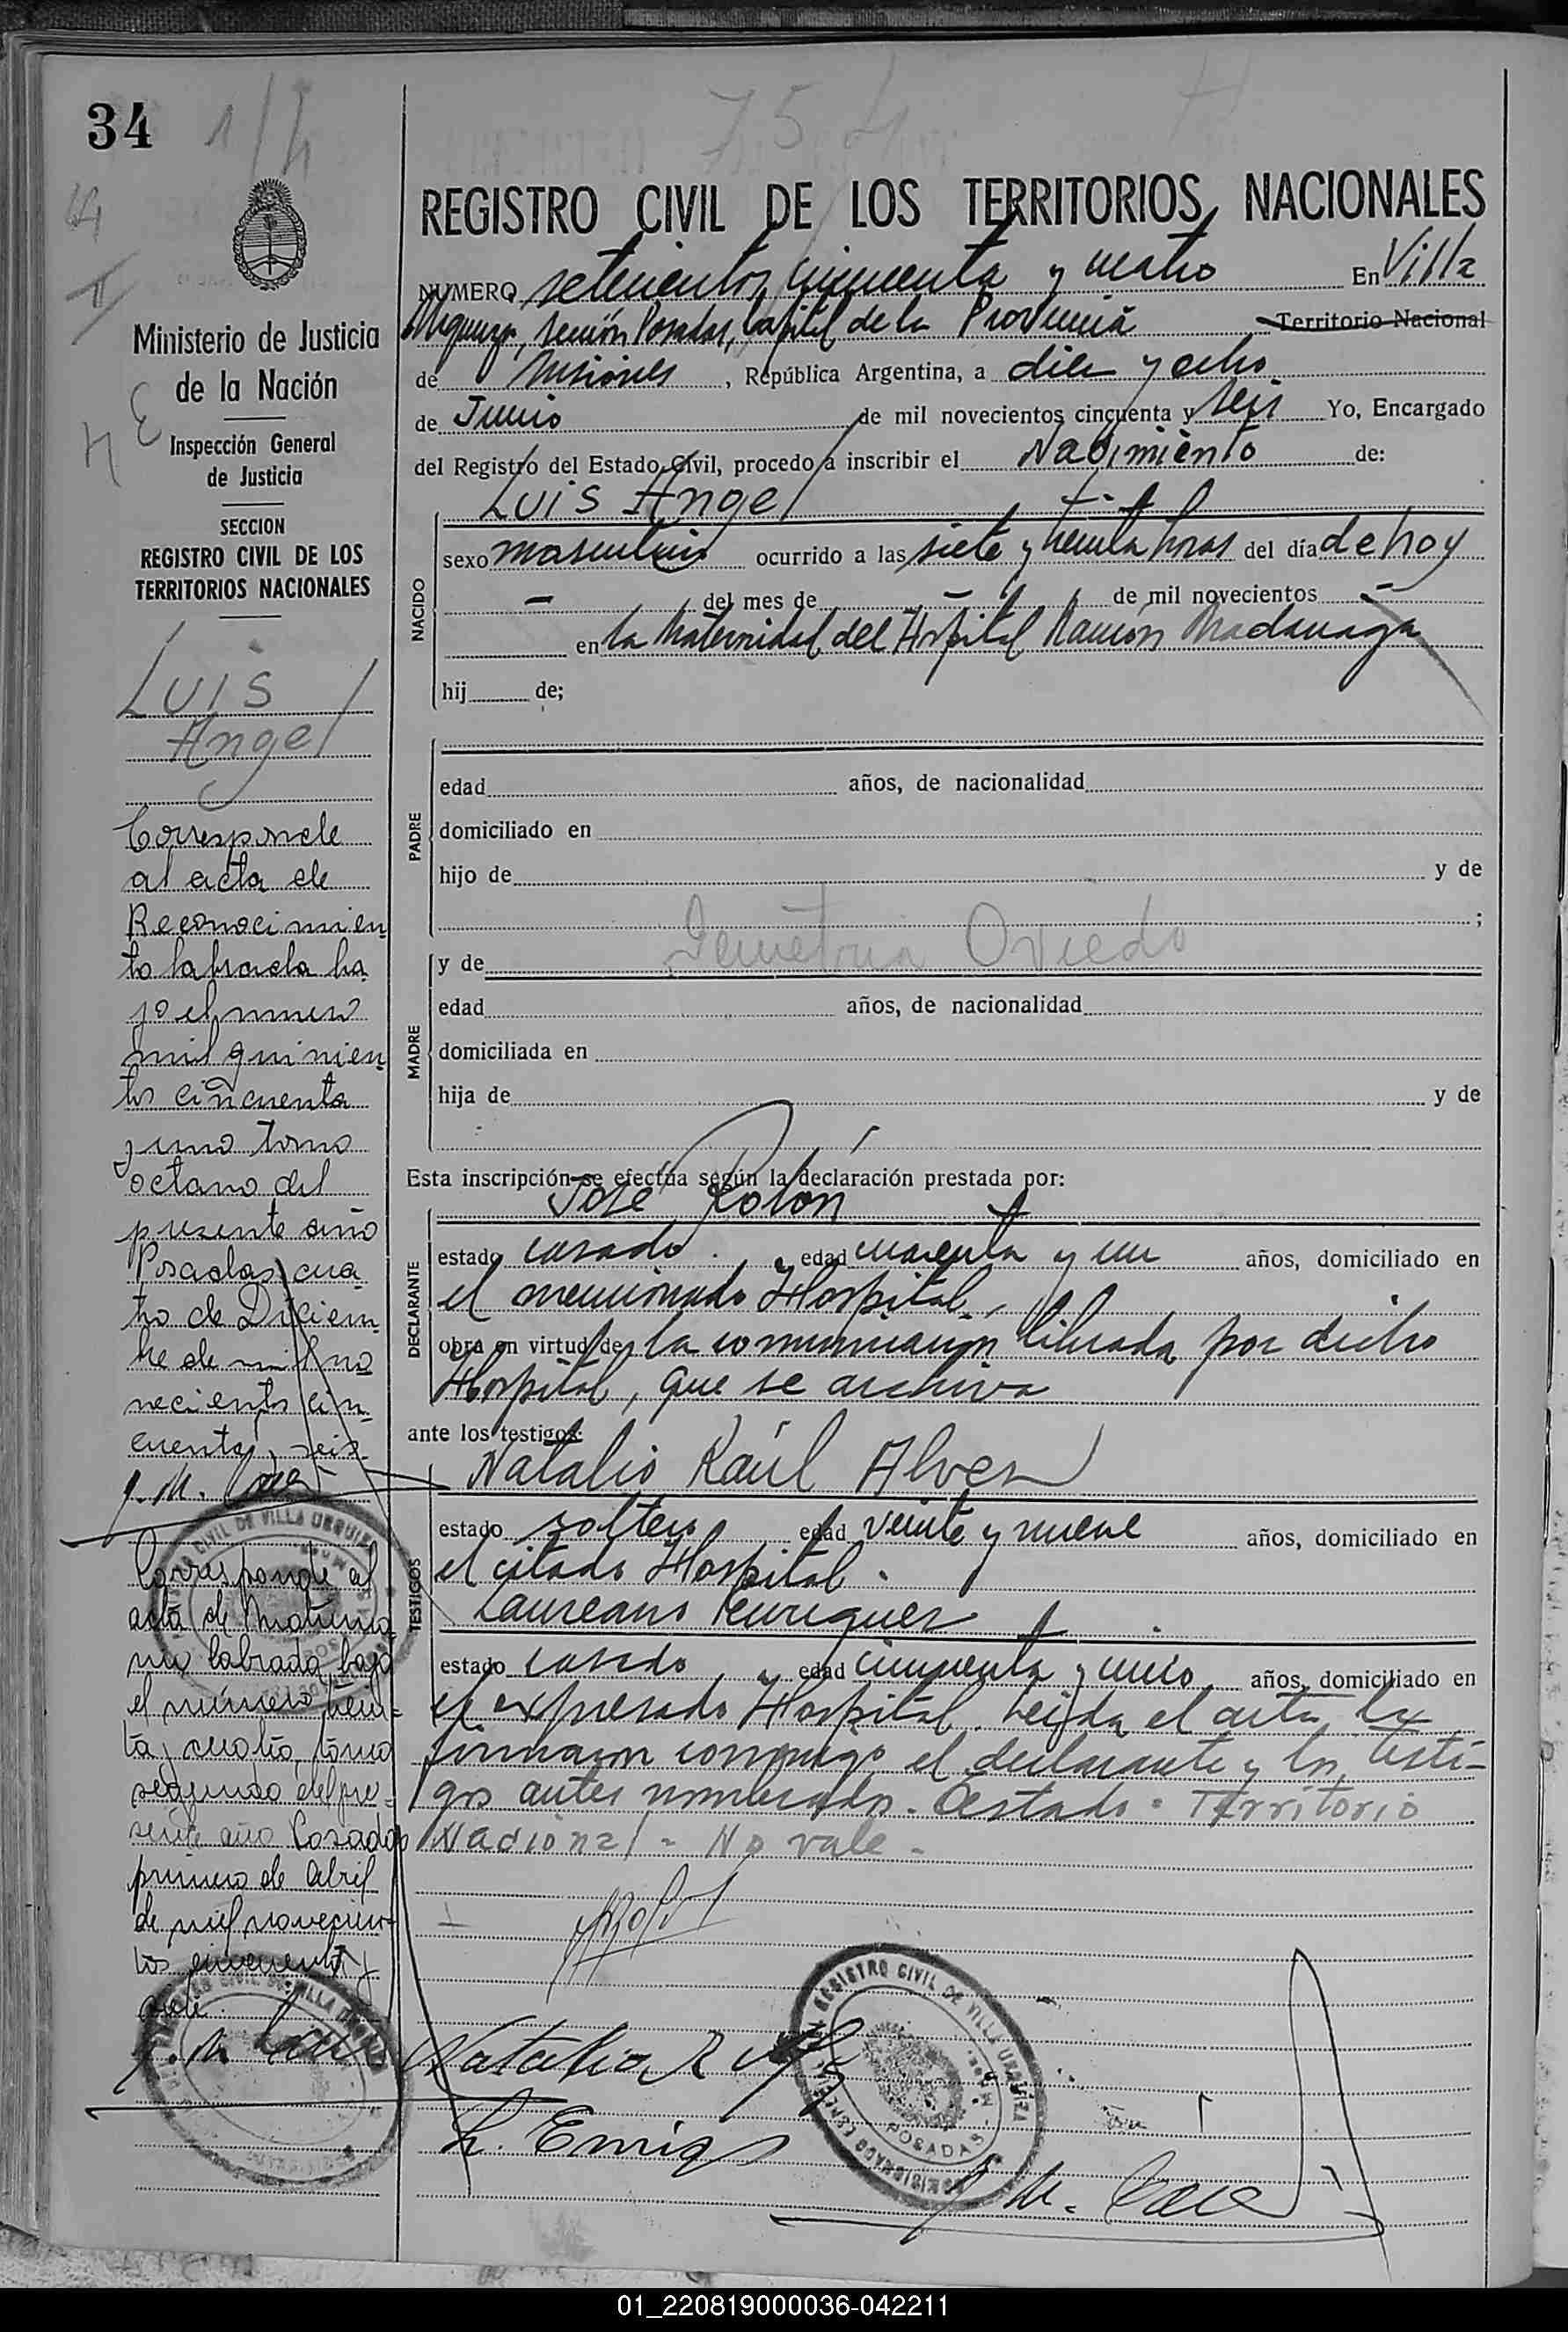 34
1/4
754
REGISTRO CIVIL DE LOS TERRITORIOS NACIONALES
NUMERO setecientos cincuenta y cuatro En Villa
Urquiza, sección Posadas, Capital de la Provincia Territorio Nacional
de Misiones, República Argentina, a diez y ocho
de Junio de mil novecientos cincuenta y seis Yo, Encargado
del Registro del Estado Civil, procedo a inscribir el Nacimiento de:
Luis Angel
NACIDO
sexo masculino ocurrido a las siete y treinta horas del día de hoy
— del mes de — de mil novecientos —
en la Maternidad del Hospital Ramón Madariaga
hij de;
PADRE
edad años, de nacionalidad
domiciliado en
hijo de y de
;
MADRE
y de Demetria Oviedo
edad años, de nacionalidad
domiciliada en
hija de y de
Esta inscripción se efectúa según la declaración prestada por:
José Rolón
DECLARANTE
estado casado. edad cuarenta y un años, domiciliado en
el mencionado Hospital,
obra en virtud de la comunicación librada por dicho
Hospital, que se archiva
ante los testigos:
Natalio Raúl Alvez
TESTIGOS
estado soltero edad veinte y nueve años, domiciliado en
el citado Hospital.
Laureano Enriquez
estado casado, edad cincuenta y cinco años, domiciliado en
el expresado Hospital. Leída el acta, la
firmaron conmigo el declarante y los testi-
gos antes nombrados. Testado = Territorio
Nacional = No vale.
L. Enriq
REGISTRO CIVIL DE VILLA URQUIZA
POSADAS
Ministerio de Justicia
de la Nación
Inspección General
de Justicia
SECCION
REGISTRO CIVIL DE LOS
TERRITORIOS NACIONALES
Luis
Angel
Corresponde
al acta de
Reconocimien
to labrada ba
jo el numero
mil quinien
tos cincuenta
y uno tomo
octavo del
presente año
Posadas cua
tro de Diciem
bre de mil no
vecientos cin
cuenta y seis
Corresponde al
acta de Matrimo
nio labrada bajo
el número trein-
ta y cuatro, tomo
segundo del pre-
sente año Posadas
primero de abril
de mil novecien-
tos cincuenta y
siete.
01_220819000036-042211